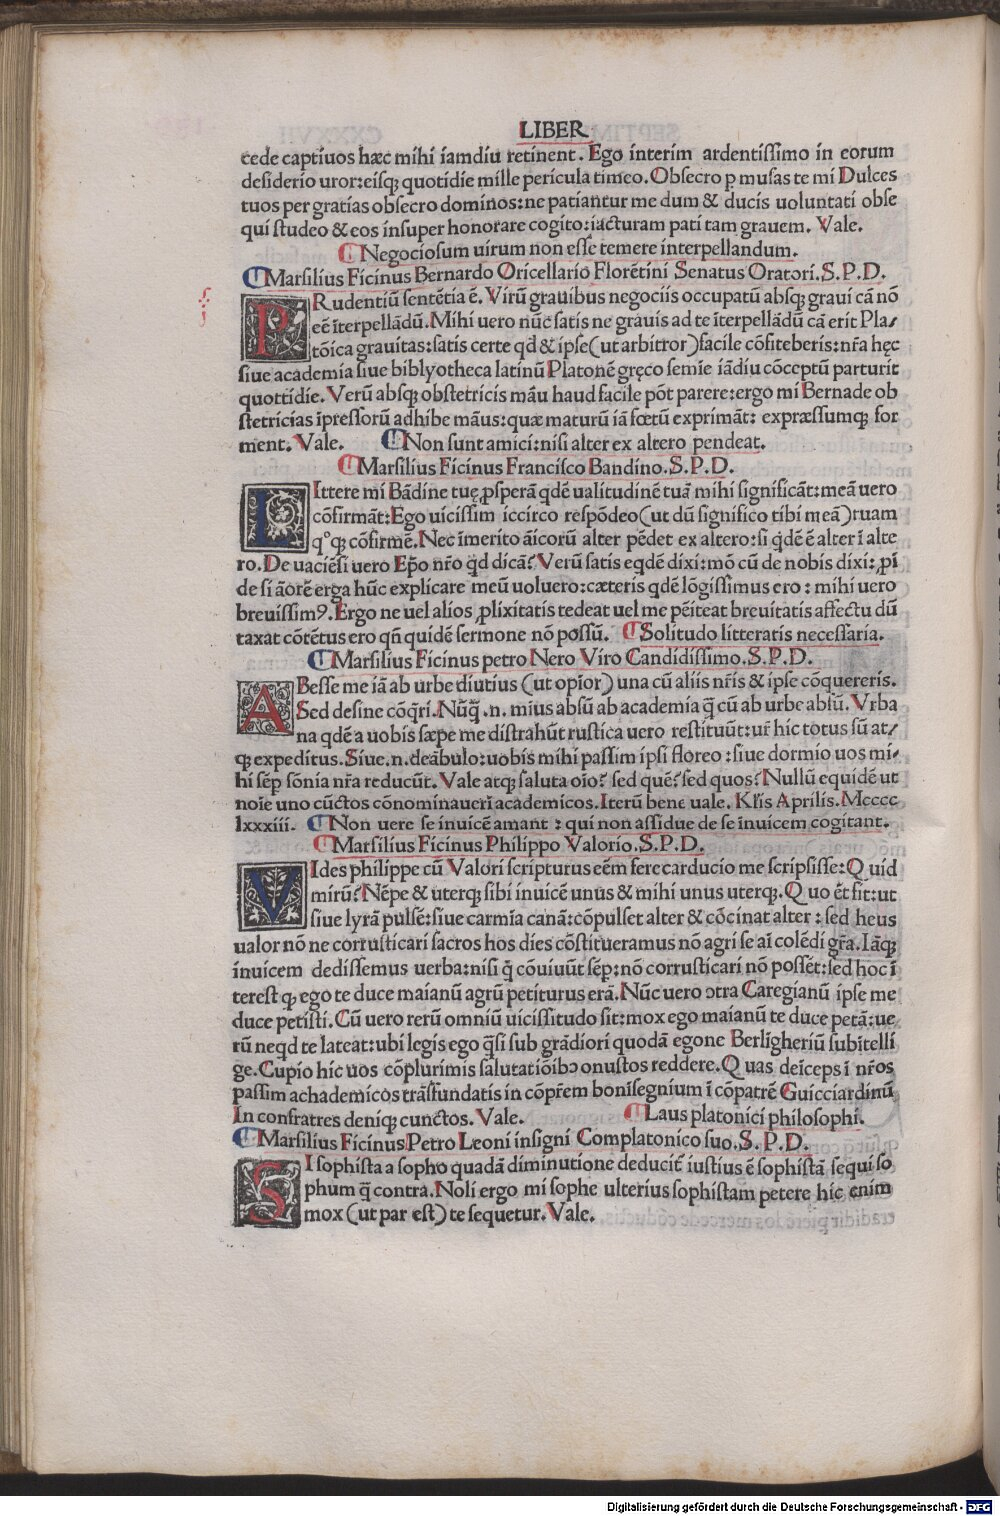 LIBER
cede captiuos hæc mihi iamdiu retinent. Ego interim ardentissimo in eorum
desiderio uror:eisq; quotidie mille pericula timeo. Obsecro p musas te mi Dulces
tuos per gratias obsecro dominos:ne patiantur me dum & ducis uoluntati obse
qui studeo & eos insuper honorare cogito:iacturam pati tam grauem. Vale.
¶Negociosum uirum non esse temere interpellandum.
¶Marsilius Ficinus Bernardo Oricellario Florētini Senatus Oratori.S.P.D.
PRudentiū sentētia ē. Virū grauibus negociis occupatū absq; graui cā nō
eē īterpellādū.Mihi uero nūc satis ne grauis ad te īterpellādū cā erit Pla/
tōica grauitas:satis certe qd & ipse(ut arbitror)facile cōfiteberis:nr̄a hęc
siue academia siue biblyotheca latinū Platonē gręco semie iādiu cōceptū parturit
quottidie.Verū absq; obstetricis māu haud facile pōt parere:ergo mi Bernade ob
stetricias īpressorū adhibe māus:quæ maturū iā fœtū exprimāt: expræssumq; for
ment. Vale. ¶Non sunt amici:nisi alter ex altero pendeat.
¶Marsilius Ficinus Francisco Bandino.S.P.D.
LIttere mi Bādine tuę ꝓsperā qdē ualitudinē tuā mihi significāt:meā uero
cōfirmāt:Ego uicissim iccirco respōdeo(ut dū significo tibi meā)tuam
q°q; cōfirmē.Nec īmerito āicorū alter pēdet ex altero:si q̇dē ē alter ī alte
ro.De uaciēsi uero Ep̄o nr̄o qd dicā? Verū satis eqdē dixi:mō cū de nobis dixi:ꝓī
de si āorē erga hūc explicare meū uoluero:cæteris qdē lōgissimus ero: mihi uero
breuissimꝰ.Ergo ne uel alios ꝓlixitatis tedeat uel me pēiteat breuitatis affectu dū
taxat cōtētus ero qn̄ quidē sermone nō possū. ¶Solitudo litteratis necessaria.
¶Marsilius Ficinus petro Nero Viro Candidissimo.S.P.D.
ABesse me iā ab urbe diutius (ut opīor) una cū aliis nr̄is & ipse cōquereris.
Sed desine cōq̄ri.Nūq̄ .n. mius absū ab academia q̄ cū ab urbe absū. Vrba
na qdē a uobis sæpe me distrahūt rustica uero restituūt:ur̄ hic totus sū at/
q; expeditus.Siue.n.deābulo:uobis mihi passim ipsi floreo:siue dormio uos mi/
hi sēp sōnia nr̄a reducūt. Vale atq; saluta oīo? sed quē? sed quos? Nullū equidē ut
noīe uno cūctos cōnominauerī academicos.Iterū bene uale. Kl̄is Aprilis.Mcccc
lxxxiii. ¶Non uere se inuicē amant : qui non assidue de se inuicem cogitant.
¶Marsilius Ficinus Philippo Valorio.S.P.D.
VIdes philippe cū Valori scripturus eēm fere carducio me scripsisse:Quid
mirū? Nēpe & uterq; sibi inuicē unus & mihi unus uterq;.Quo ēt fit:ut
siue lyrā pulse:siue carmīa canā:cōpulset alter & cōcinat alter: sed heus
ualor nō ne corrusticari sacros hos dies cōstitueramus nō agri se aī colēdi gr̄a.Iāq;
inuicem dedissemus uerba:nisi q̇ cōuiuūt sēp:nō corrusticari nō possēt:sed hoc ī
terest q; ego te duce maianū agrū petiturus erā.Nūc uero ↄtra Caregianū ipse me
duce petisti.Cū uero rerū omniū uicissitudo sit:mox ego maianū te duce petā:ue
rū neqd te lateat:ubi legis ego q̄si sub grādiori quodā egone Berlīgheriū subītelli
ge.Cupio hic uos cōplurimis salutatiōibↄ onustos reddere.Quas deīceps ī nr̄os
passim achademicos trāsfundatis in cōpr̄em bonisegnium ī cōpatrē Guicciardinū
In confratres deniq; cunctos. Vale. ¶Laus platonici philosophi.
¶Marsilius Ficinus Petro Leoni insigni Complatonico suo.S.P.D.
SI sophista a sopho quadā diminutione deducit̄ iustius ē sophistā sequi so
phum q̄ contra.Noli ergo mi sophe ulterius sophistam petere hic enim
mox (ut par est) te sequetur. Vale.
Digitalisierung gefördert durch die Deutsche Forschungsgemeinschaft - DFG